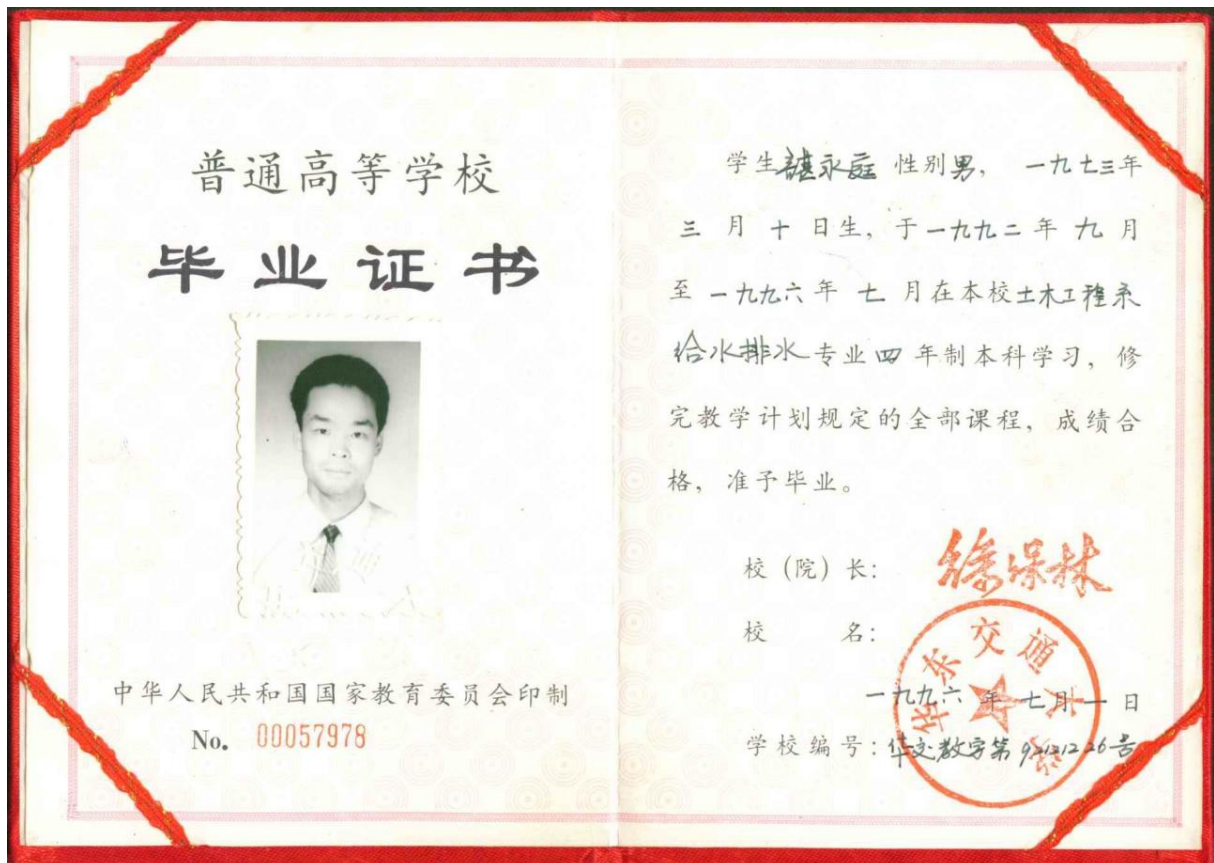 普通高等学校
毕业证书
中华人民共和国国家教育委员会印制
No. 00057978
学生 永庭 性别男， 一九七三年
三月十日生，于一九九二年九月
至一九九六年七月在本校土木工程系
给水排水专业四年制本科学习，修
完教学计划规定的全部课程，成绩合
格，准予毕业。
校（院）长：
校 名：
华东交通大学
一九九六年七月一日
学校编号：华交教字第 号